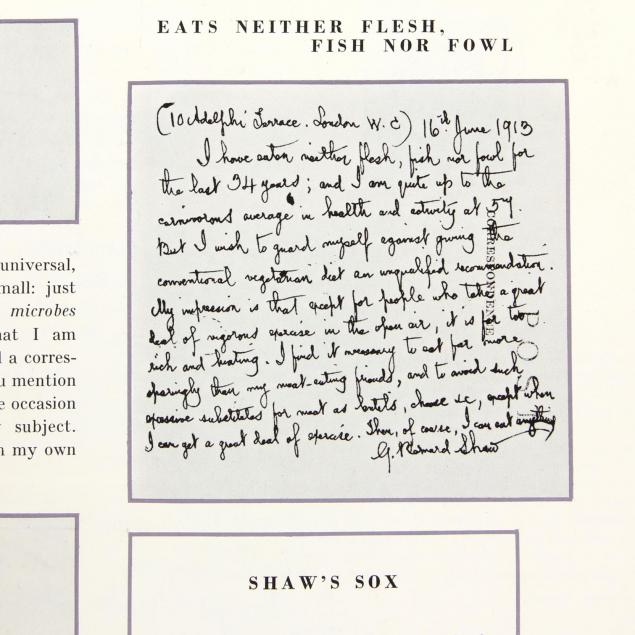 EATS NEITHER FLESH,
FISH NOR FOWL
(10 Adelphi Terrace. London W.C) 16th June 1913
I have eaten neither flesh, fish nor fowl for
the last 34 years; and I am quite up to the
carnivorous average in health and activity at 57.
But I wish to guard myself against giving the
conventional vegetarian diet an unqualified recommendation.
My impression is that except for people who take a great
deal of vigorous exercise in the open air, it is far too
rich and heating. I find it necessary to eat far more
sparingly than my meat-eating friends, and to avoid such
excessive substitutes for meat as lentils, cheese &c, except when
I can get a great deal of exercise. Then, of course, I can eat anything
G. Bernard Shaw
CORRESPONDENCE
universal,
mall: just
microbes
hat I am
d a corres-
u mention
e occasion
subject.
n my own
SHAW'S SOX